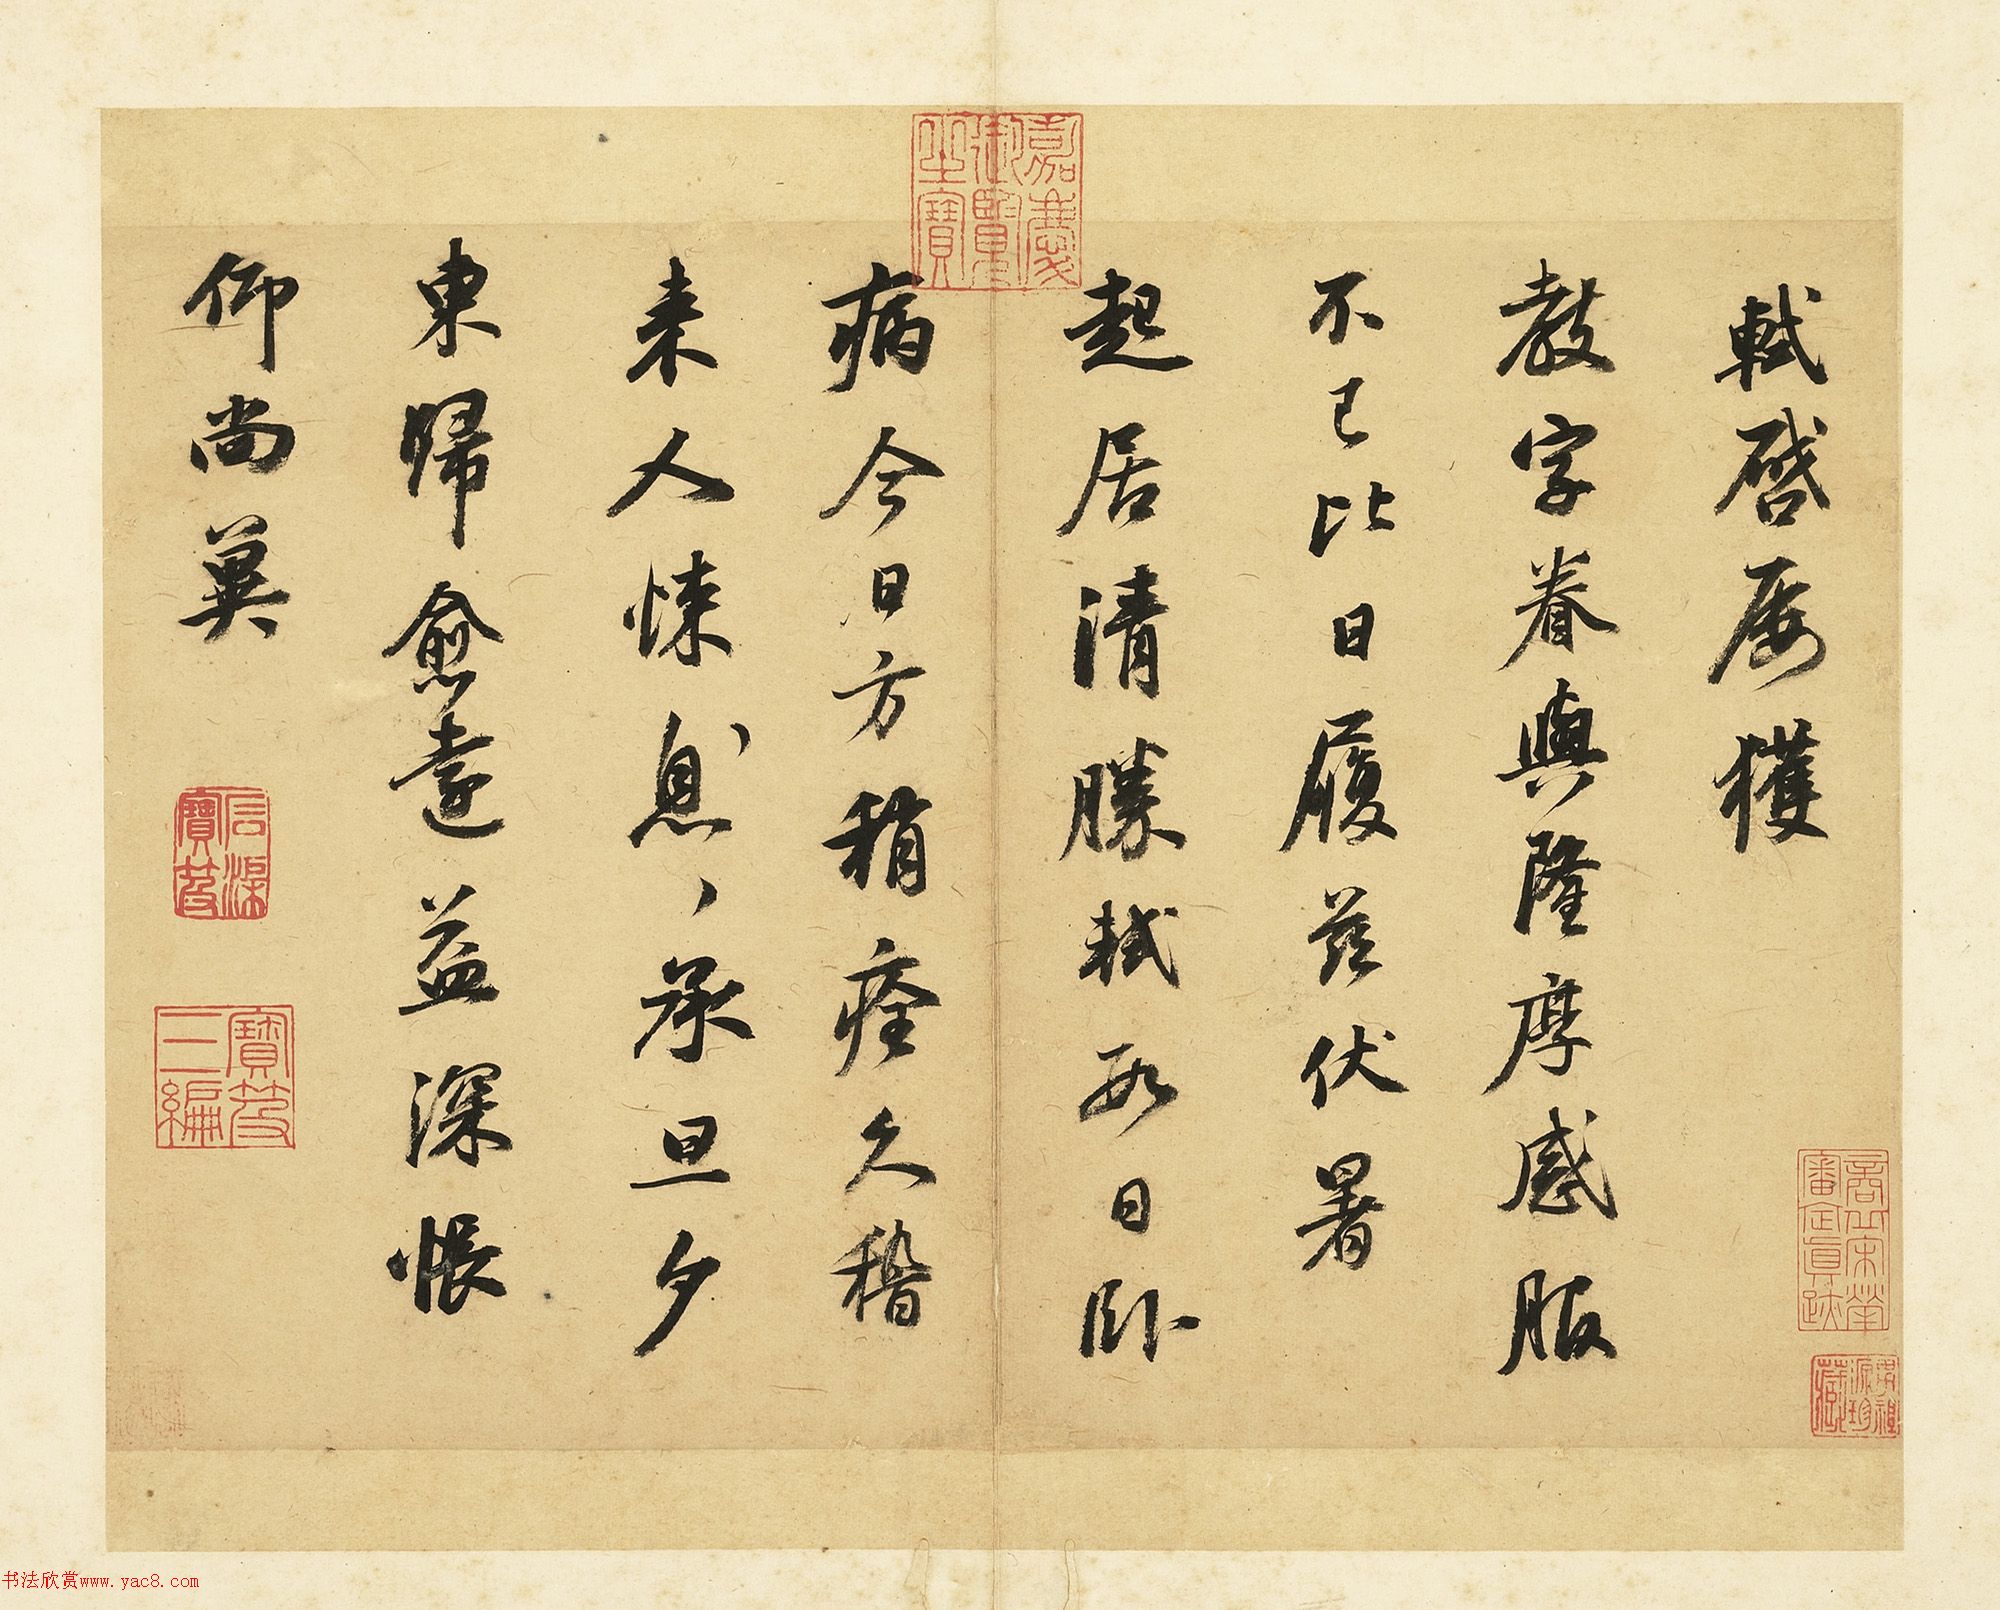 軾啓屢獲
教字眷與隆厚感服
不已比日履茲伏暑
起居清勝軾數日臥
病今日方稍痊久稽
來人悚息、承旦夕
東歸愈遠益深悵
仰尚冀
嘉慶御覽之寶
石渠寶笈
寶笈三編
書法欣赏www.yac8.com